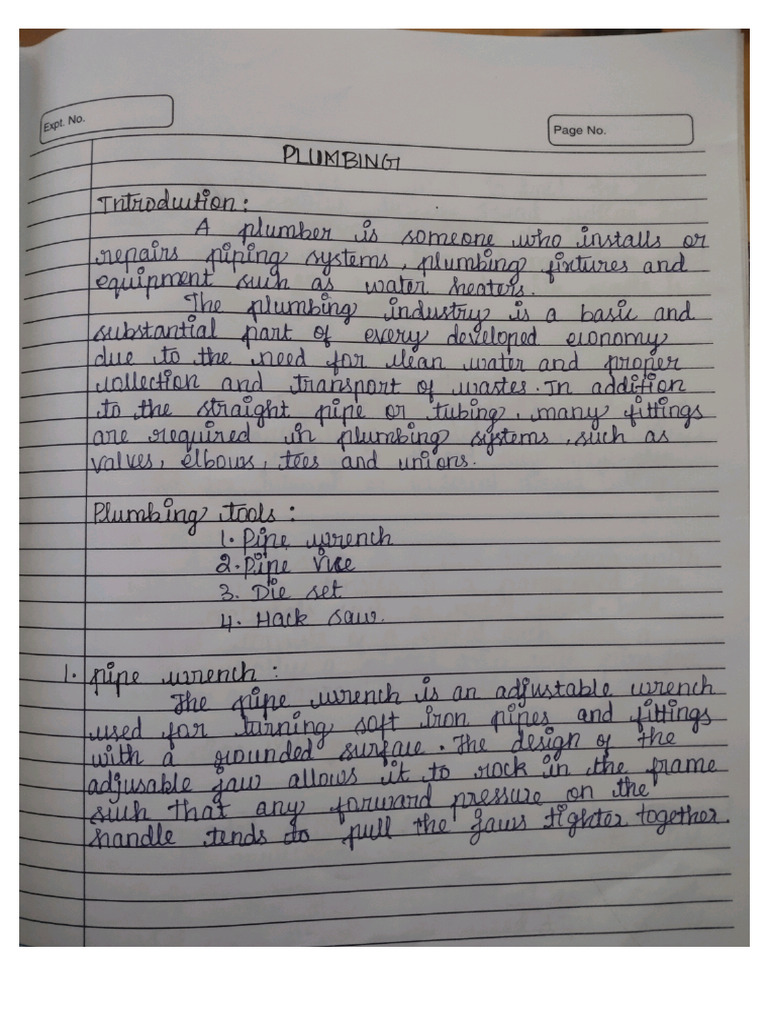 Expt. No.
Page No.
PLUMBING
Introduction:
A plumber is someone who installs or
repairs piping systems, plumbing fixtures and
equipment such as water heaters.
The plumbing industry is a basic and
substantial part of every developed economy
due to the need for clean water and proper
collection and transport of wastes. In addition
to the straight pipe or tubing, many fittings
are required in plumbing systems, such as
valves, elbows, tees and unions.
Plumbing tools:
1. Pipe wrench
2. Pipe vice
3. Die set
4. Hack saw.
1. pipe wrench:
The pipe wrench is an adjustable wrench
used for turning soft iron pipes and fittings
with a rounded surface. The design of the
adjusable jaw allows it to rock in the frame
such that any forward pressure on the
handle tends to pull the jaws tighter together.